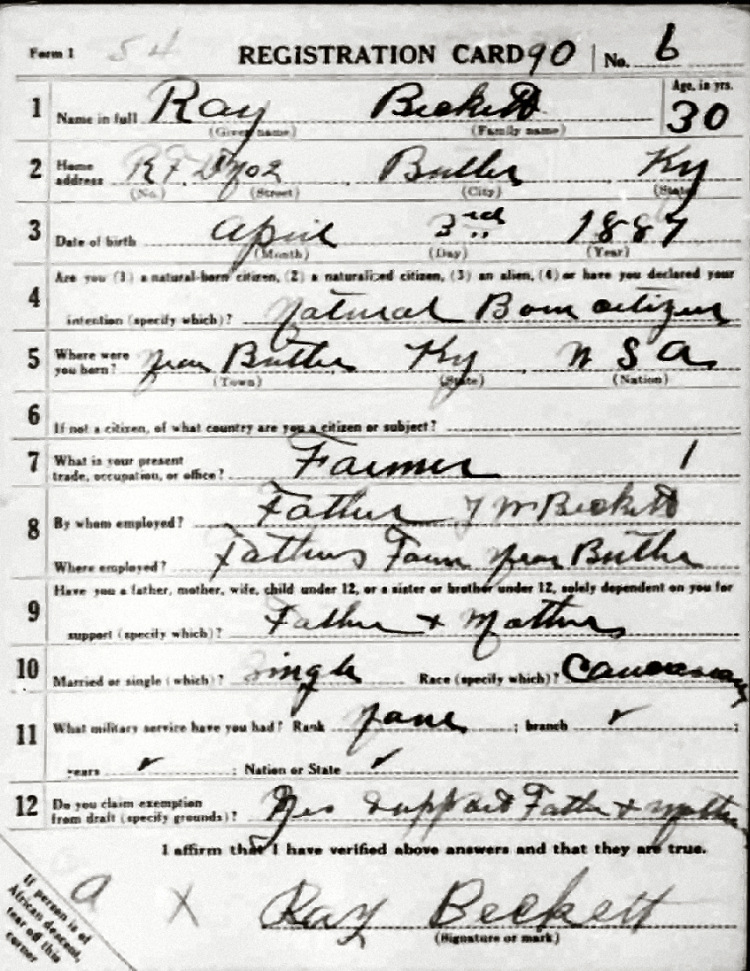 Form 1 54 REGISTRATION CARD 90 No. 6
1 Name in full Ray Beckett Age, in yrs. 30
(Given name) (Family name)
2 Home address R F D no2 Butler Ky
(No.) (Street) (City) (State)
3 Date of birth April 3rd 1887
(Month) (Day) (Year)
4 Are you (1) a natural-born citizen, (2) a naturalized citizen, (3) an alien, (4) or have you declared your
intention (specify which)? Natural Born citizen
5 Where were you born? near Butler Ky U S A
(Town) (State) (Nation)
6 If not a citizen, of what country are you a citizen or subject?
7 What is your present trade, occupation, or office? Farmer 1
8 By whom employed? Father Beckett
Where employed? Fathers Farm near Butler
9 Have you a father, mother, wife, child under 12, or a sister or brother under 12, solely dependent on you for
support (specify which)? Father + Mother
10 Married or single (which)? Single Race (specify which)? Caucasian
11 What military service have you had? Rank none ; branch ✓ ;
years ✓ ; Nation or State ✓
12 Do you claim exemption from draft (specify grounds)? Yes support Father + mother
I affirm that I have verified above answers and that they are true.
If person is of
African descent,
tear off this
corner
a X Ray Beckett
(Signature or mark)